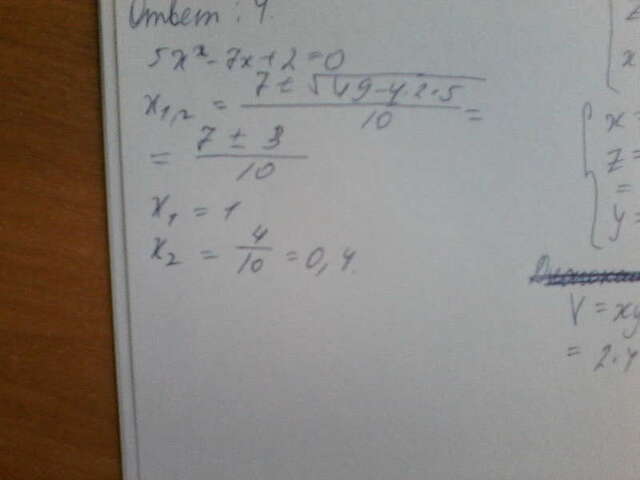 Ответ: 4.
5x² - 7x + 2 = 0
x₁,₂ = (7 ± √(49 - 4·2·5)) / 10 =
= (7 ± 3) / 10
x₁ = 1
x₂ = 4/10 = 0,4.
x
x =
z =
=
y =
V = xy
= 2·4